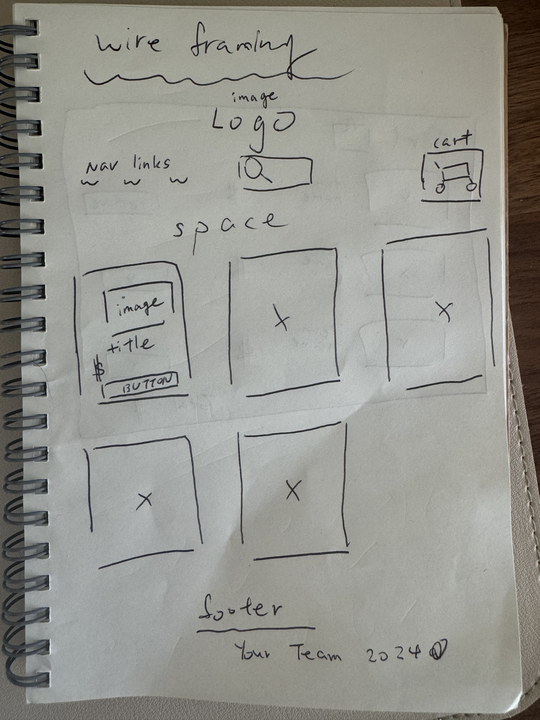 wire framing
image
Logo
cart
Nav links
space
image
title
$
BUTTON
X
X
X
X
footer
Your Team 2024